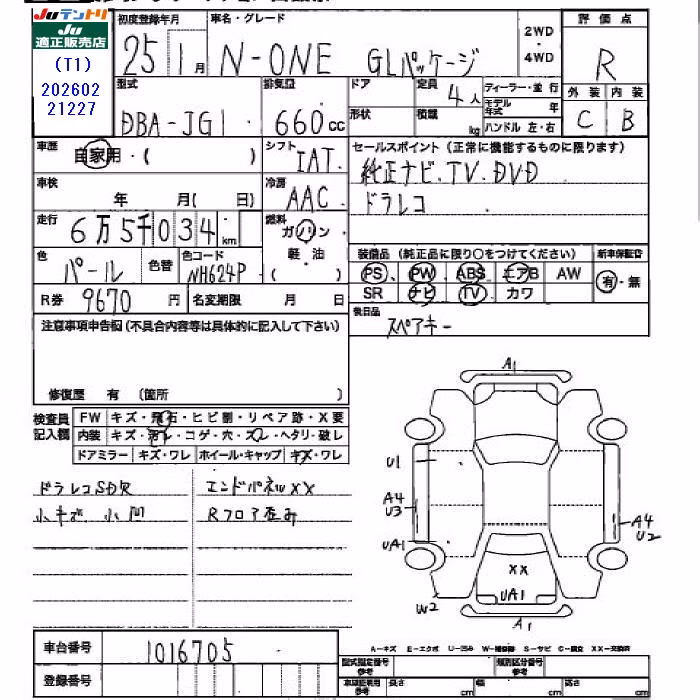 Juテントリ
Ju
適正販売店
(T1)
202602
21227
初度登録年月 車名・グレード 2WD・4WD 評価点
25 1月 N-ONE GLパッケージ R
型式 排気量 ドア 定員 4人 ディーラー・並行 外装 内装
DBA-JG1 660cc 形状 積載 kg モデル年式 年 ハンドル 左・右 C B
車歴 自家用・( ) シフト IAT セールスポイント(正常に機能するものに限ります)
純正ナビ.TV.DVD
車検 年 月( 日) 冷房 AAC ドラレコ
走行 6万5千034km 燃料 ガソリン 軽・油 ( )
色 パール 色替 色コード NH624P
装備品(純正品に限り○をつけてください) 新車保証書
PS、PW、ABS エアB AW 有・無
SR ナビ TV カワ
R券 9670円 名変期限 月 日 後日品 スペアキー
注意事項申告欄(不具合内容等は具体的に記入して下さい)
修復歴 有 (箇所 )
検査員記入欄 FW キズ・飛石・ヒビ割・リペア跡・X要
内装 キズ・汚レ・コゲ・穴・スレ・ヘタリ・破レ
ドアミラー キズ・ワレ ホイール・キャップ キズ・ワレ
ドラレコSD欠 エンドパネルXX
小キズ、小凹 Rフロア歪み
A1
U1
A4
U3
UA1
W2
XX
UA1
A1
A4
U2
車台番号 1016705
登録番号
A-キズ E-エクボ U-凹み W-補修跡 S-サビ C-腐食 XX-交換済
型式指定番号 参考 類別区分番号 参考
車体証寸用 参考 長さ cm 幅 cm 高さ cm